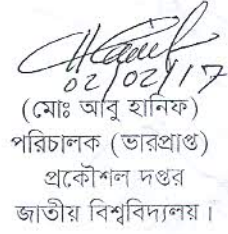 02/02/17
(মোঃ আবু হানিফ)
পরিচালক (ভারপ্রাপ্ত)
প্রকৌশল দপ্তর
জাতীয় বিশ্ববিদ্যালয়।